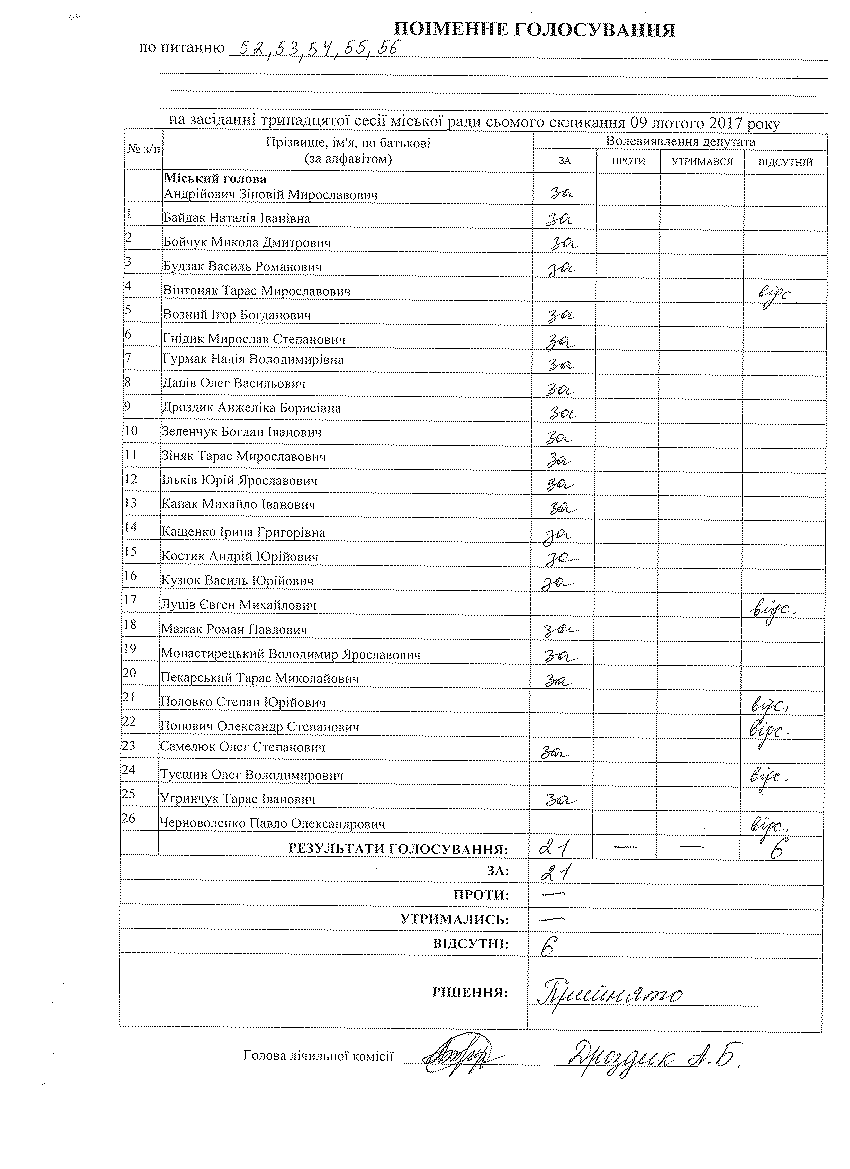 ПОІМЕННЕ ГОЛОСУВАННЯ
по питанню 52, 53, 54, 55, 56
на засіданні тринадцятої сесії міської ради сьомого скликання 09 лютого 2017 року
№ з/п Прізвище, ім'я, по батькові (за алфавітом) Волевиявлення депутата
ЗА ПРОТИ УТРИМАВСЯ ВІДСУТНІЙ
Міський голова
Андрійович Зіновій Мирославович за
1 Байдак Наталія Іванівна за
2 Бойчук Микола Дмитрович за
3 Будзак Василь Романович за
4 Вінтоняк Тарас Мирославович відс
5 Возний Ігор Богданович за
6 Гнідик Мирослав Степанович за
7 Гурмак Надія Володимирівна за
8 Даців Олег Васильович за
9 Дроздик Анжеліка Борисівна за
10 Зеленчук Богдан Іванович за
11 Зіняк Тарас Мирославович за
12 Ільків Юрій Ярославович за
13 Капак Михайло Іванович за
14 Кащенко Ірина Григорівна за
15 Костик Андрій Юрійович за
16 Кузюк Василь Юрійович за
17 Луців Євген Михайлович відс.
18 Мажак Роман Павлович за
19 Монастирецький Володимир Ярославович за
20 Пекарський Тарас Миколайович за
21 Половко Степан Юрійович відс.
22 Попович Олександр Степанович відс.
23 Самелюк Олег Степанович за
24 Туєшин Олег Володимирович відс.
25 Угринчук Тарас Іванович за
26 Черноволенко Павло Олександрович відс.
РЕЗУЛЬТАТИ ГОЛОСУВАННЯ: 21 — — 6
ЗА: 21
ПРОТИ: —
УТРИМАЛИСЬ: —
ВІДСУТНІ: 6
РІШЕННЯ: Прийнято
Голова лічильної комісії Дроздик А.Б.